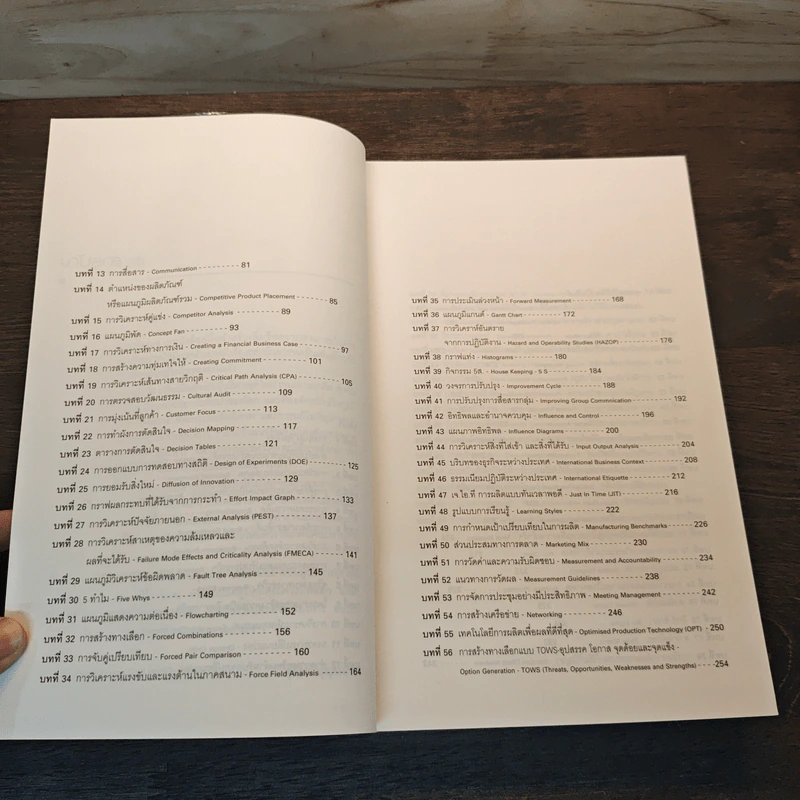 บทที่ 13 การสื่อสาร - Communication --------- 81
บทที่ 14 ตำแหน่งของผลิตภัณฑ์
หรือแผนภูมิผลิตภัณฑ์รวม - Competitive Product Placement ------- 85
บทที่ 15 การวิเคราะห์คู่แข่ง - Competitor Analysis --------- 89
บทที่ 16 แผนภูมิพัด - Concept Fan --------- 93
บทที่ 17 การวิเคราะห์ทางการเงิน - Creating a Financial Business Case --------- 97
บทที่ 18 การสร้างความทุ่มเทใจให้ - Creating Commitment --------- 101
บทที่ 19 การวิเคราะห์เส้นทางสายวิกฤติ - Critical Path Analysis (CPA) --------- 105
บทที่ 20 การตรวจสอบวัฒนธรรม - Cultural Audit --------- 109
บทที่ 21 การมุ่งเน้นที่ลูกค้า - Customer Focus --------- 113
บทที่ 22 การทำผังการตัดสินใจ - Decision Mapping --------- 117
บทที่ 23 ตารางการตัดสินใจ - Decision Tables --------- 121
บทที่ 24 การออกแบบการทดสอบทางสถิติ - Design of Experiments (DOE) --------- 125
บทที่ 25 การยอมรับสิ่งใหม่ - Diffusion of Innovation --------- 129
บทที่ 26 กราฟผลกระทบที่ได้รับจากการกระทำ - Effort Impact Graph --------- 133
บทที่ 27 การวิเคราะห์ปัจจัยภายนอก - External Analysis (PEST) --------- 137
บทที่ 28 การวิเคราะห์สาเหตุของความล้มเหลวและ
ผลที่จะได้รับ - Failure Mode Effects and Criticality Analysis (FMECA) --------- 141
บทที่ 29 แผนภูมิวิเคราะห์ข้อผิดพลาด - Fault Tree Analysis --------- 145
บทที่ 30 5 ทำไม - Five Whys --------- 149
บทที่ 31 แผนภูมิแสดงความต่อเนื่อง - Flowcharting --------- 152
บทที่ 32 การสร้างทางเลือก - Forced Combinations --------- 156
บทที่ 33 การจับคู่เปรียบเทียบ - Forced Pair Comparison --------- 160
บทที่ 34 การวิเคราะห์แรงขับและแรงต้านในภาคสนาม - Force Field Analysis --------- 164
บทที่ 35 การประเมินล่วงหน้า - Forward Measurement --------- 168
บทที่ 36 แผนภูมิแกนต์ - Gantt Chart --------- 172
บทที่ 37 การวิเคราะห์อันตราย
จากการปฏิบัติงาน - Hazard and Operability Studies (HAZOP) --------- 176
บทที่ 38 กราฟแท่ง - Histograms --------- 180
บทที่ 39 กิจกรรม 5ส. - House Keeping - 5 S --------- 184
บทที่ 40 วงจรการปรับปรุง - Improvement Cycle --------- 188
บทที่ 41 การปรับปรุงการสื่อสารกลุ่ม - Improving Group Commnication --------- 192
บทที่ 42 อิทธิพลและอำนาจควบคุม - Influence and Control --------- 196
บทที่ 43 แผนภาพอิทธิพล - Influence Diagrams --------- 200
บทที่ 44 การวิเคราะห์สิ่งที่ใส่เข้า และสิ่งที่ได้รับ - Input Output Analysis --------- 204
บทที่ 45 บริบทของธุรกิจระหว่างประเทศ - International Business Context --------- 208
บทที่ 46 ธรรมเนียมปฏิบัติระหว่างประเทศ - International Etiquette --------- 212
บทที่ 47 เจ ไอ ที การผลิตแบบทันเวลาพอดี - Just In Time (JIT) --------- 216
บทที่ 48 รูปแบบการเรียนรู้ - Learning Styles --------- 222
บทที่ 49 การกำหนดเป้าเปรียบเทียบในการผลิต - Manufacturing Benchmarks --------- 226
บทที่ 50 ส่วนประสมทางการตลาด - Marketing Mix --------- 230
บทที่ 51 การวัดค่าและความรับผิดชอบ - Measurement and Accountability --------- 234
บทที่ 52 แนวทางการวัดผล - Measurement Guidelines --------- 238
บทที่ 53 การจัดการประชุมอย่างมีประสิทธิภาพ - Meeting Management --------- 242
บทที่ 54 การสร้างเครือข่าย - Networking --------- 246
บทที่ 55 เทคโนโลยีการผลิตเพื่อผลที่ดีที่สุด - Optimised Production Technology (OPT) -- 250
บทที่ 56 การสร้างทางเลือกแบบ TOWS-อุปสรรค โอกาส จุดด้อยและจุดแข็ง -
Option Generation - TOWS (Threats, Opportunities, Weaknesses and Strengths) ---- 254